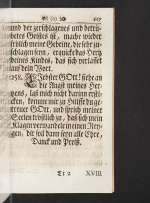 und der zerschlagenes und betrü-
betes Geistes ist, mache wieder
frölich meine Gebeine, die sehr zu-
schlagen seyn, erquicke das Hertz
deines Kindes, das sich verlasset
auf dein Wort.
Liebster GOtt! siehe an
die Angst meines Her-
tzens, laß mich nicht darinn ersti-
cken, komme mir zu Hülffe du ge-
treuer GOtt, und sprich meiner
Seelen tröstlich zu, daß sich mein
Klagen verwandele in einen Rey-
gen, dir soll dann seyn alle Ehre,
Danck und Preiß.
XVIII.